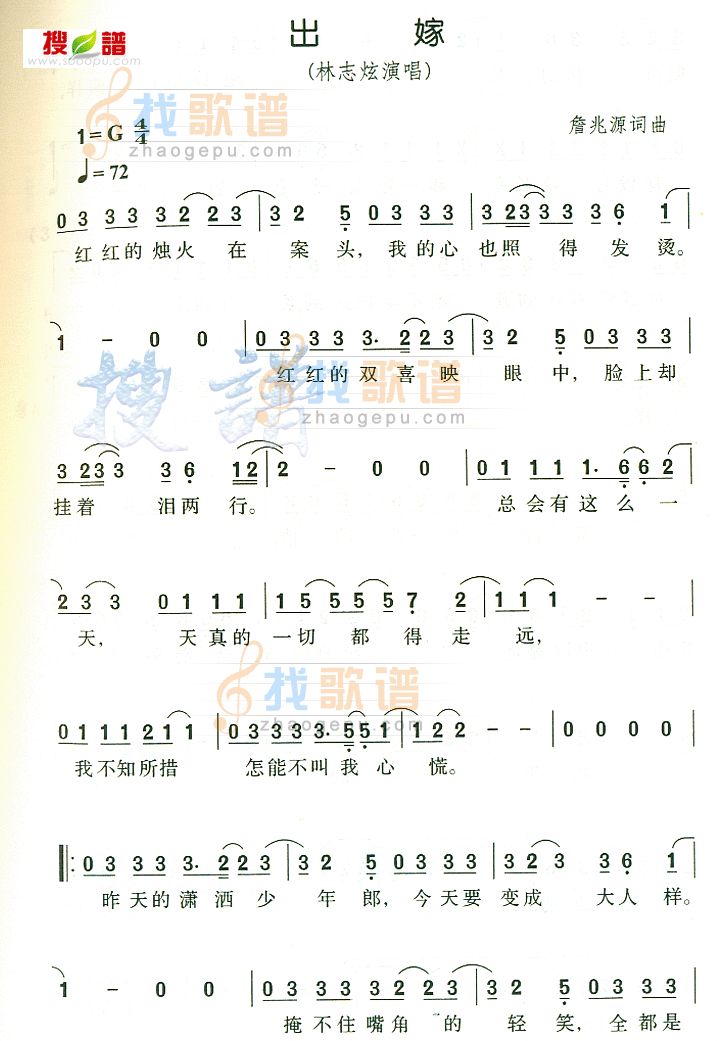 出 嫁
搜 谱
www.sooopu.com
(林志炫演唱)
找歌谱
zhaogepu.com
1=G 4/4
詹兆源词曲
♩=72
0 3 3 3 3 3 2 2 3 | 3 2 5 0 3 3 3 | 3 23 3 3 3 3 6 1 |
红红的烛火 在 案头,我的心也照 得 发 烫。
1 - 0 0 | 0 3 3 3 3 3· 2 2 3 | 3 2 5 0 3 3 3 |
红红的双喜映 眼 中,脸上却
搜 谱
找歌谱
zhaogepu.com
3 23 3 3 6 12 | 2 - 0 0 | 0 1 1 1 1· 6 6 2 |
挂着 泪两 行。 总会有这么一
2 3 3 0 1 1 1 | 1 5 5 5 5 7 2 | 1 1 1 - - |
天, 天真的一切 都 得走 远,
找歌谱
zhaogepu.com
0 1 1 1 2 1 1 | 0 3 3 3 3· 5 5 1 | 1 2 2 - - | 0 0 0 0
我不知所措 怎能不叫我心 慌。
0 3 3 3 3· 2 2 3 | 3 2 5 0 3 3 3 | 3 2 3 3 6 1 |
昨天的潇洒少 年 郎,今天要变成 大人样。
1 - 0 0 | 0 3 3 3 3 3 2 2 3 | 3 2 5 0 3 3 3 |
掩不住嘴角 的 轻 笑,全都是